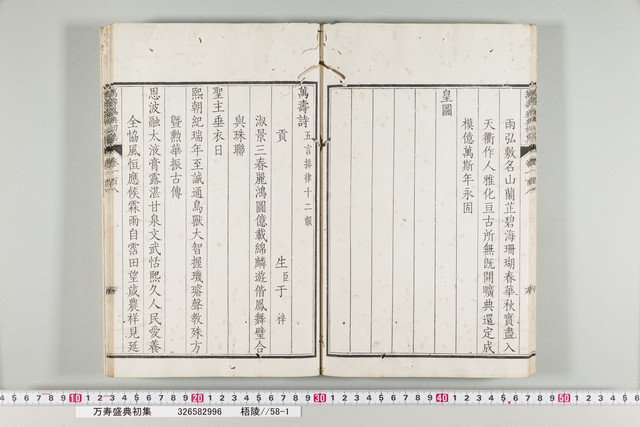 雨弘敷名山蘭芷碧海珊瑚春華秋實盡入
天衢作人雅化亘古所無既開曠典還定成
模億萬斯年永固
皇圖
萬壽詩 五言排律十二韻
貢 生臣于 祥
淑景三春麗鴻圖億載綿麟遊偕鳳舞璧合
與珠聯
聖主垂衣日
熙朝紀瑞年至誠通鳥獸大智握璣璿聲教殊方
暨勲華振古傳
恩波融太液膏露湛甘泉文武恬熙久人民愛養
全協風恒應候霖雨自霑田望歲農祥見延
10 20 30 40 50
万寿盛典初集 326582996 梧陵//58-1